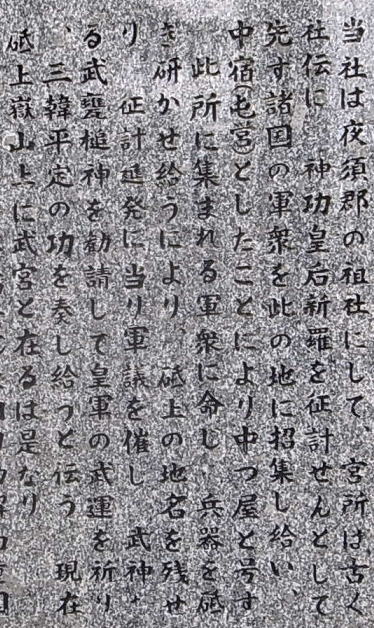 当社は夜須郡の祖社にして、宮所は古く
社伝に 神功皇后新羅を征討せんとして
先す諸国の軍衆を此の地に招集し給い、
中宿(屯宮)としたことにより中つ屋と号す
此所に集まれる軍衆に命し 兵器を砥
き研かせ給うにより 砥上の地名を残せ
り 征討進発に当り軍議を催し 武神
る武甕槌神を勧請して皇軍の武運を祈り
、三韓平定の功を奏し給うと伝う 現在
砥上嶽山上に武宮と在るは是なり